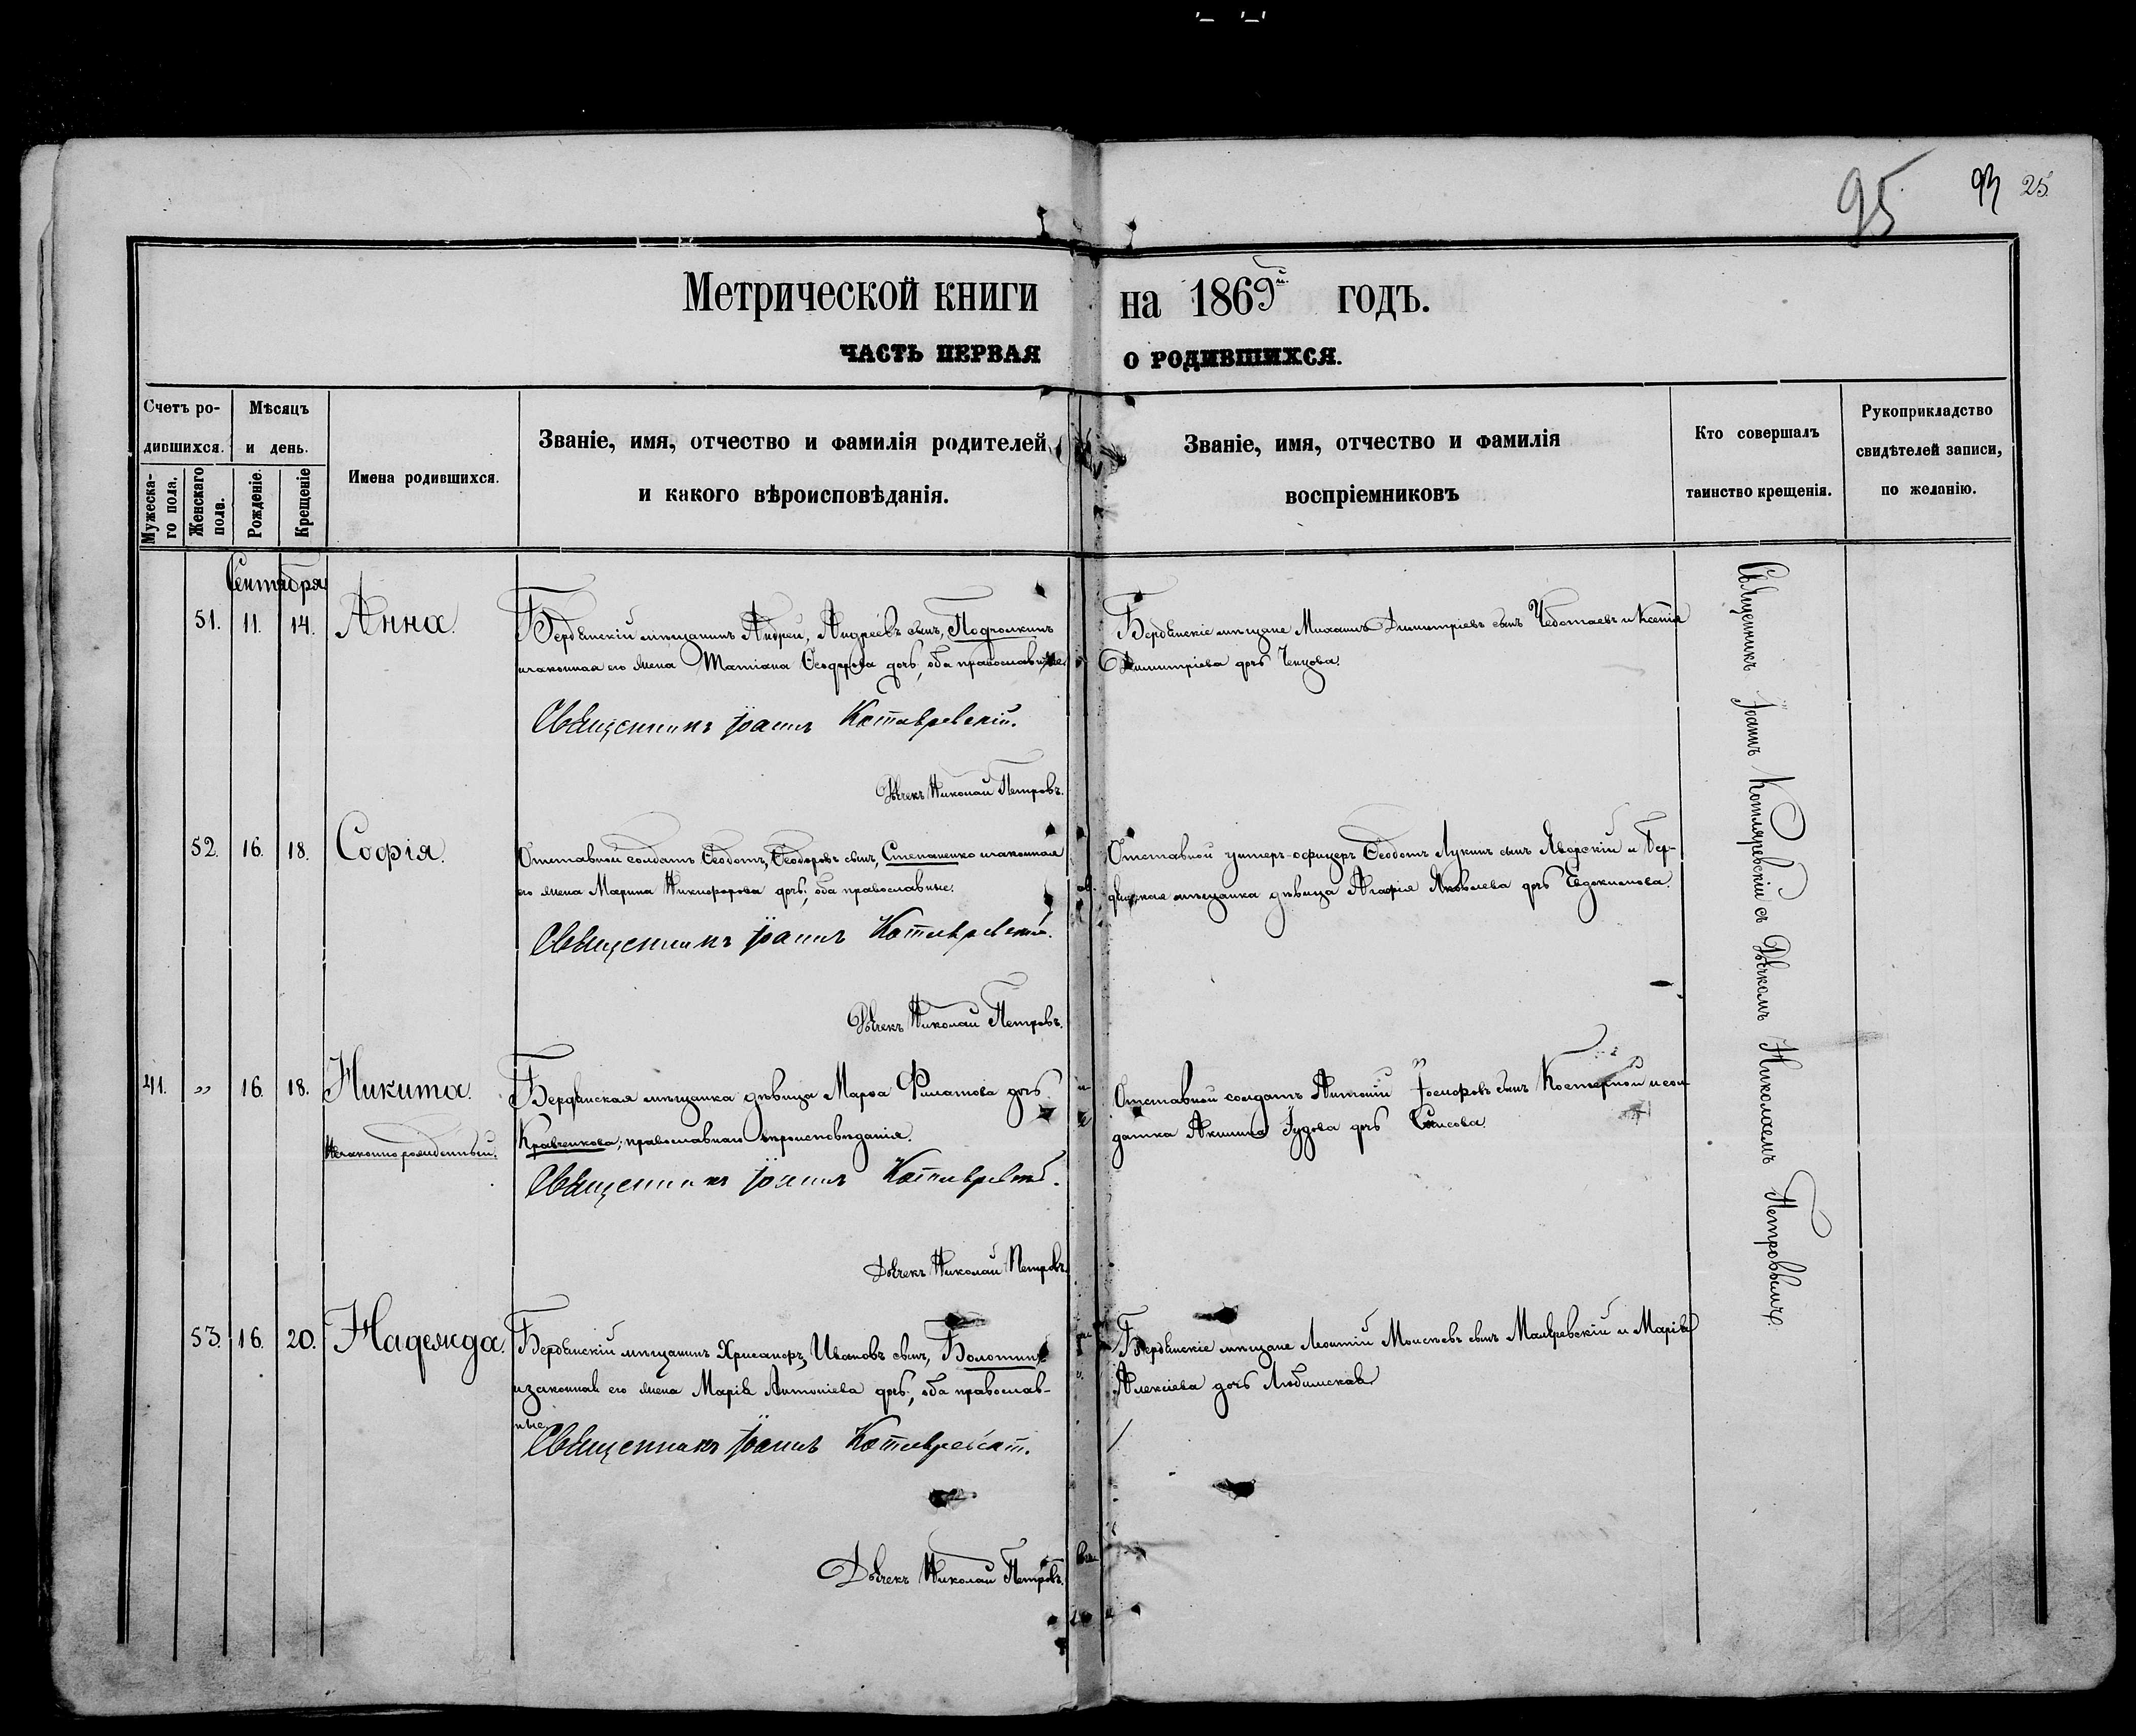 95 93 25.
Метрической книги на 1869й годъ.
ЧАСТЬ ПЕРВАЯ О РОДИВШИХСЯ.
Счетъ ро-
дившихся.
Мужеска-
го пола.
Женскаго
пола.
Мѣсяцъ
и день.
Рожденіе.
Крещеніе
Имена родившихся.
Званіе, имя, отчество и фамилія родителей,
и какого вѣроисповѣданія.
Званіе, имя, отчество и фамилія
воспріемниковъ
Кто совершалъ
таинство крещенія.
Рукоприкладство
свидѣтелей записи,
по желанію.
Сентября
51. 11. 14. Анна.
Бердянскій мѣщанинъ Андрей, Андреевъ сынъ, Подголкинъ
и законная его жена Татіана Ѳеодорова дочь, оба православные.
Священникъ Іоаннъ Котляревскій.
Дьячекъ Николай Петровъ.
Бердянскіе мѣщане Михаилъ Димитріевъ сынъ Чеботаевъ и Ксенія
Димитріева дочь Ченцова.
52. 16. 18. Софія.
Отставной солдатъ Ѳеодотъ, Ѳеодоровъ сынъ, Степаненко и законная
его жена Марина Никифорова дочь; оба православные.
Священникъ Іоаннъ Котляревскій.
Дьячекъ Николай Петровъ.
Отставной унтеръ-офицеръ Ѳеодотъ Лукинъ сынъ Яворскій и Бер-
дянская мѣщанка дѣвица Агафія Яковлева дочь Евдокимова.
41. „ 16. 18. Никита.
Незаконнорожденный.
Бердянская мѣщанка дѣвица Марѳа Филатова дочь
Кравченкова; православнаго вѣроисповѣданія.
Священникъ Іоаннъ Котляревскій.
Дьячекъ Николай Петровъ.
Отставной солдатъ Антоній сынъ Костерной и сол-
датка Акилина Іудова дочь
53. 16. 20. Надежда.
Бердянскій мѣщанинъ Хрисанфъ, Ивановъ сынъ, Болотинъ
и законная его жена Марія Антоніева дочь; оба православ-
ные.
Священникъ Іоаннъ Котляревскій.
Дьячекъ Николай Петровъ.
Бердянскіе мѣщане Леонтій Моисеевъ сынъ Маляревскій и Марія
Алексіева дочь Любимская
Священникъ Іоаннъ Котляревскій съ Дьячкомъ Николаемъ Петровымъ.